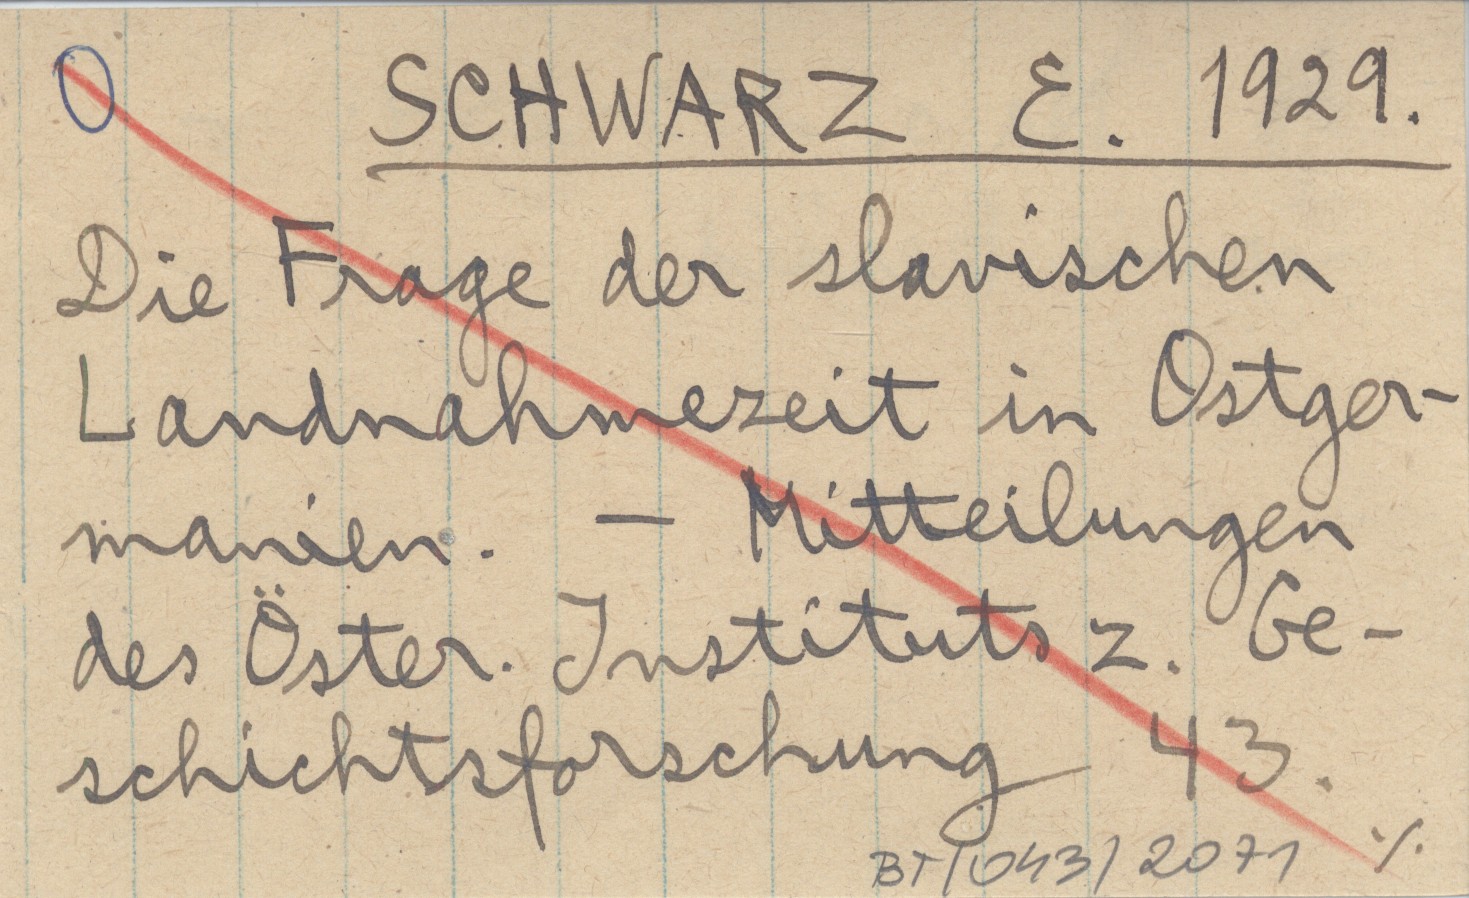 SCHWARZ E. 1929.
Die Frage der slavischen
Landnahmezeit in Ostger-
manien. — Mitteilungen
des Öster. Instituts z. Ge-
schichtsforschung 43.
BT/043/2071 ·/.